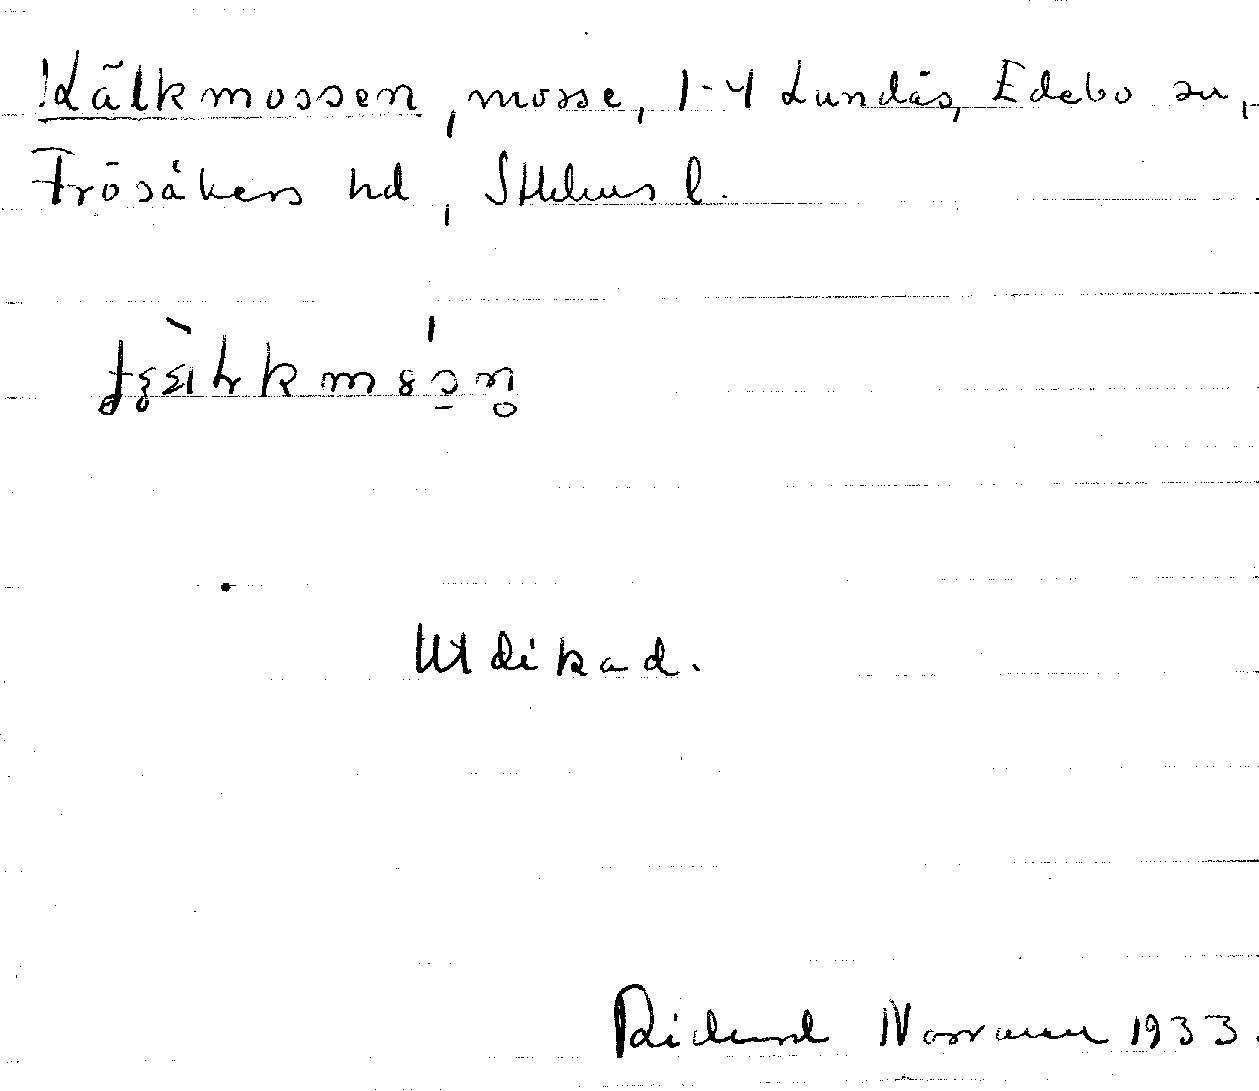 Kälkmossen, mosse, 1-4 Lundås, Edebo sn,
Frösåkers hd, Sthlms l.
Utdikad.
Rickard Norrman 1933.